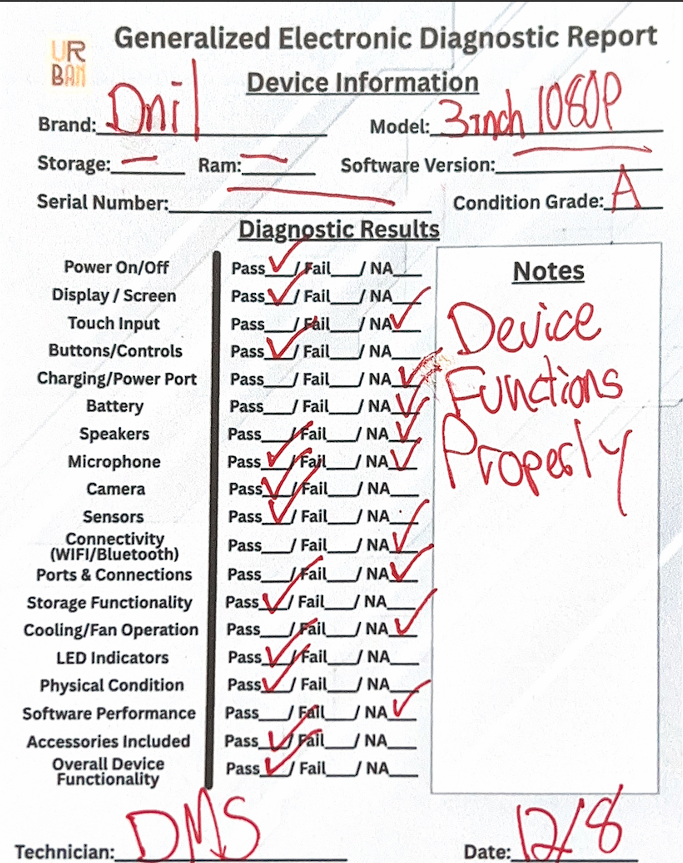 UR
BAN
Generalized Electronic Diagnostic Report
Device Information
Brand: Dnil Model: 3inch 1080P
Storage: — Ram: — Software Version: —
Serial Number: — Condition Grade: A
Diagnostic Results
Power On/Off Pass ✓ / Fail / NA
Display / Screen Pass ✓ / Fail / NA
Touch Input Pass / Fail / NA ✓
Buttons/Controls Pass ✓ / Fail / NA
Charging/Power Port Pass / Fail / NA ✓
Battery Pass / Fail / NA ✓
Speakers Pass / Fail / NA ✓
Microphone Pass ✓ / Fail / NA ✓
Camera Pass ✓ / Fail / NA
Sensors Pass ✓ / Fail / NA
Connectivity
(WIFI/Bluetooth) Pass / Fail / NA ✓
Ports & Connections Pass / Fail / NA ✓
Storage Functionality Pass ✓ / Fail / NA
Cooling/Fan Operation Pass / Fail / NA ✓
LED Indicators Pass ✓ / Fail / NA
Physical Condition Pass ✓ / Fail / NA
Software Performance Pass / Fail / NA ✓
Accessories Included Pass ✓ / Fail / NA
Overall Device
Functionality Pass ✓ / Fail / NA
Notes
Device
Functions
Properly
Technician: DMS Date: 12/8